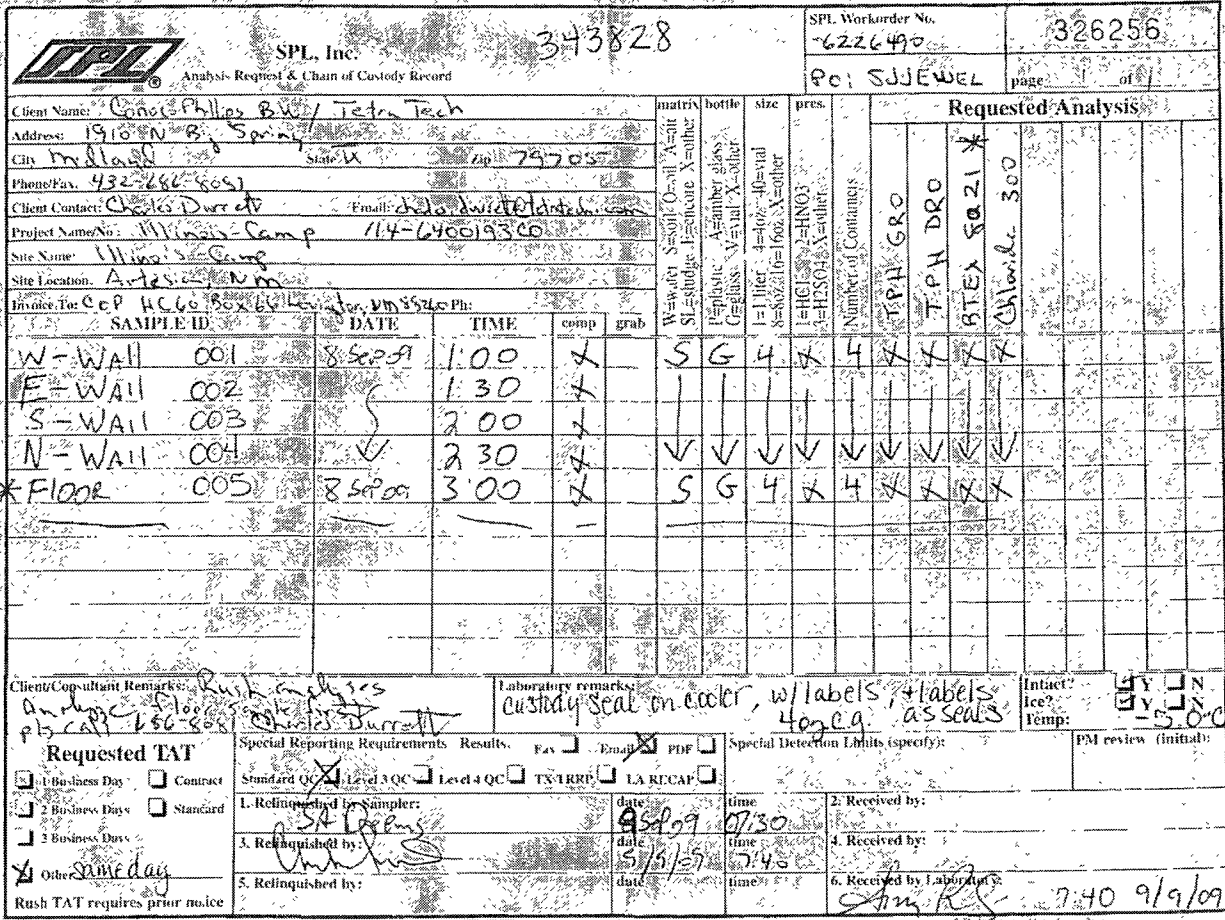 343828
SPL Workorder No.
6226490
326256
SPL ®
SPL, Inc.
Analysis Request & Chain of Custody Record
PO: SJJEWEL
page 1 of 1
Client Name: ConocoPhllps BW / Tetra Tech
Address: 1910 N Big Spring
City Midland State TX Zip 79705
Phone/Fax. 432-686-8081
Client Contact: Charles Durrett Email:
Project Name/No: Illinois-Camp 114-6400193CO
Site Name: Illinois-Camp
Site Location. Artesia, NM
Invoice To: COP HC60 Box 66 Lovington, NM 88260 Ph:
matrix bottle size pres.
W=water S=soil O=oil A=air
SL=sludge E=encore X=other
P=plastic A=amber glass
G=glass V=vial X=other
1=1 liter 4=4oz 40=vial
8=8oz 16=16oz X=other
1=HCl 2=HNO3
3=H2SO4 X=other
Number of Containers
Requested Analysis
TPH GRO
TPH DRO
BTEX 8021 *
Chloride 300
SAMPLE ID DATE TIME comp grab
W-WAll 001 8 Sep 09 1:00 X S G 4 X 4 X X X X
E-WAll 002 1:30 X
S-WAll 003 2 00 X
N-WAll 004 2 30 X
*FlooR 005 8 Sep 09 3:00 X S G 4 X 4 X X X X
Client/Consultant Remarks: Rush analyses
Analyze floor sample first
pls call 686-8081 Charles Durrett
Laboratory remarks:
custody seal on cooler, w/labels, +labels
4oz c.g. as seals
Intact? Y N
Ice? Y N
Temp: -3.0°C
Requested TAT
1 Business Day Contract
2 Business Days Standard
3 Business Days
X Other Same day
Rush TAT requires prior notice
Special Reporting Requirements Results. Fax Email X PDF
Standard QC X Level 3 QC Level 4 QC TX TRRP LA RECAP
Special Detection Limits (specify):
PM review (initial):
1. Relinquished by Sampler: date 9 Sep 09 time 07:30
2. Received by:
3. Relinquished by: date 9/9/09 time 7:40
4. Received by:
5. Relinquished by: date time
6. Received by Laboratory:
7:40 9/9/09